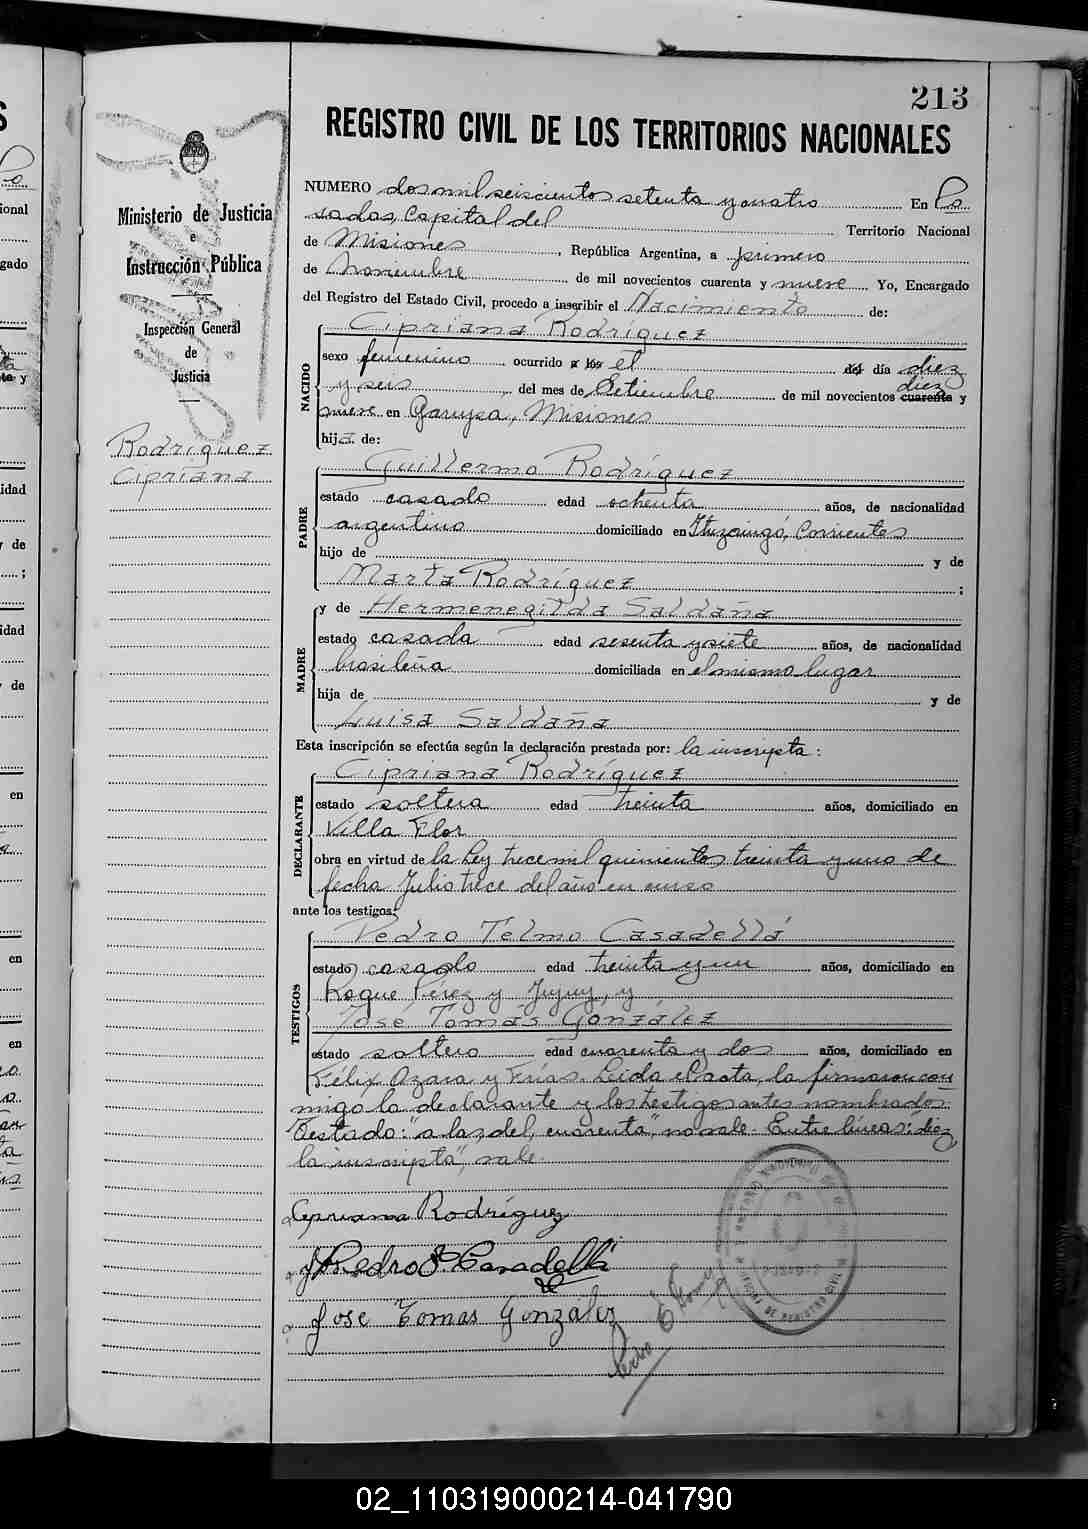 213
REGISTRO CIVIL DE LOS TERRITORIOS NACIONALES
Ministerio de Justicia
e
Instrucción Pública
Inspección General
de
Justicia
Rodríguez
Cipriana
NUMERO dos mil seiscientos setenta y cuatro En Po
sadas, Capital del Territorio Nacional
de Misiones, República Argentina, a primero
de noviembre de mil novecientos cuarenta y nueve Yo, Encargado
del Registro del Estado Civil, procedo a inscribir el Nacimiento de:
NACIDO
Cipriana Rodríguez
sexo femenino ocurrido a las el del día diez
y seis del mes de Setiembre de mil novecientos cuarenta diez y
nueve en Garupa, Misiones
hija de:
PADRE
Guillermo Rodríguez
estado casado edad ochenta años, de nacionalidad
argentino domiciliado en Ituzaingó, Corrientes
hijo de y de
Marta Rodríguez;
MADRE
y de Hermenegilda Saldaña
estado casada edad sesenta y siete años, de nacionalidad
brasileña domiciliada en el mismo lugar
hija de y de
Luisa Saldaña
Esta inscripción se efectúa según la declaración prestada por: la inscripta:
DECLARANTE
Cipriana Rodríguez
estado soltera edad treinta años, domiciliado en
Villa Flor
obra en virtud de la Ley trece mil quinientos treinta y uno de
fecha Julio trece del año en curso
ante los testigos:
TESTIGOS
Pedro Telmo Casadellá
estado casado edad treinta y un años, domiciliado en
Roque Pérez y Jujuy, y
José Tomás González
estado soltero edad cuarenta y dos años, domiciliado en
Félix Azara y Frías. Leida el acta, la firmaron con
migo la declarante y los testigos antes nombrados.
Testado: "a las, del, cuarenta", no vale. Entre líneas: "diez
la inscripta", vale.
Cipriana Rodríguez
Pedro T. Casadellá
Jose Tomas González
02_110319000214-041790